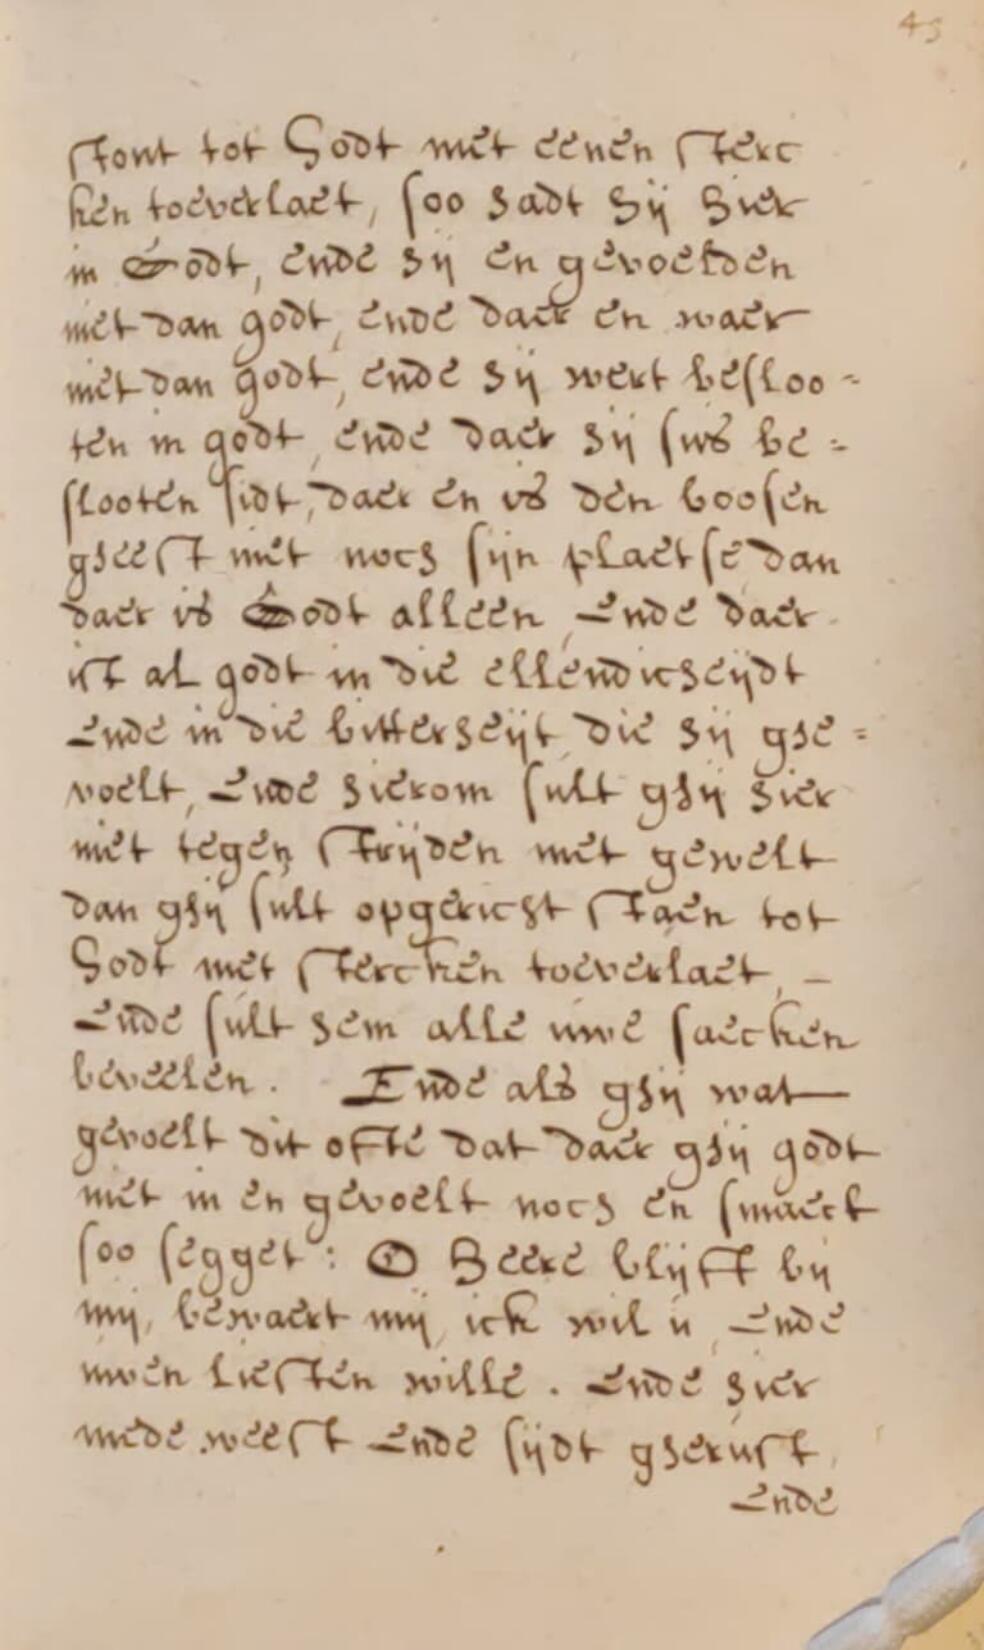 45
stont tot Godt met eenen sterc
ken toeverlaet, soo hadt hij hier
in Godt, ende hij en gevoelden
niet dan godt, ende daer en waer
niet dan godt, ende hij wert besloo=
ten in godt, ende daer hij sus be=
slooten sidt, daer en is den boosen
gheest niet noch sijn plaetse dan
daer is Godt alleen, Ende daer
ist al godt in die ellendicheijdt
Ende in die bitterheijt die hij ghe=
voelt, Ende hierom sult ghij hier
niet tegen strijden met gewelt
dan ghij sult opgericht staen tot
Godt met stercken toeverlaet, –
Ende sult hem alle uwe saecken
beveelen. Ende als ghij wat
gevoelt dit ofte dat daer ghij godt
niet in en gevoelt noch en smaeckt
soo segget: O Heere blijft bij
mij, bewaert mij, ick wil u, Ende
uwen liefsten wille. Ende hier
mede weest Ende sijdt gherust,
Ende